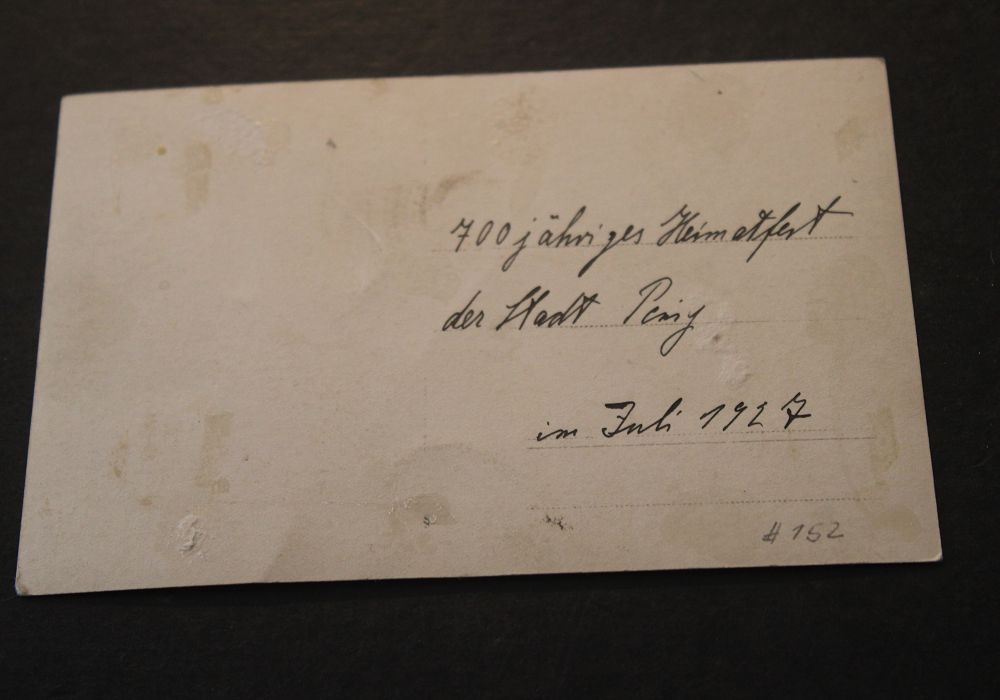 700 jähriges Heimatfest
der Stadt Penig
im Juli 1927
# 152